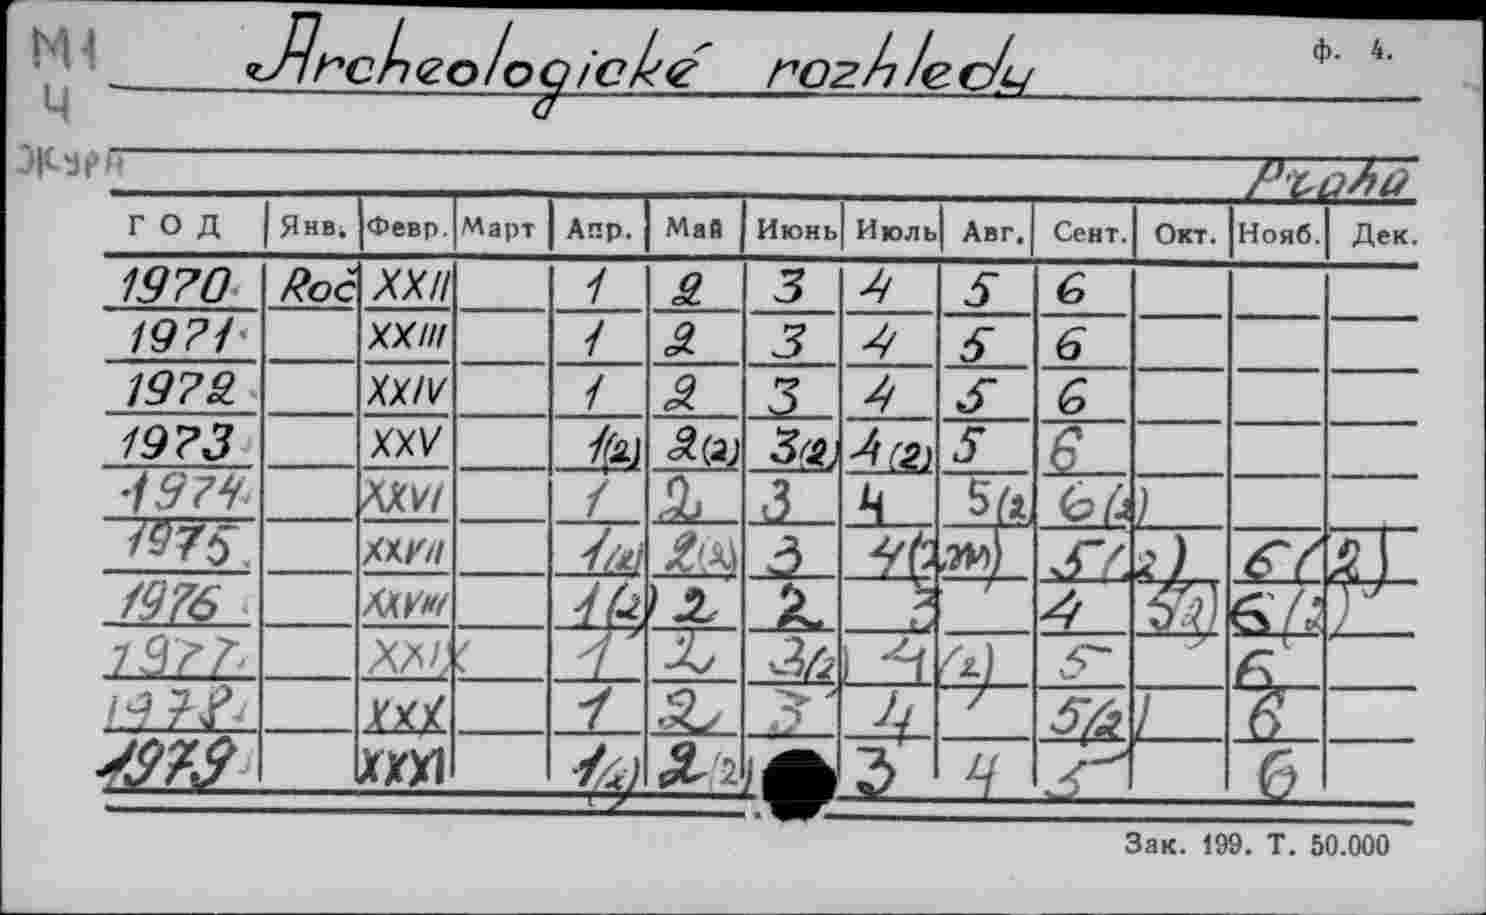 М1 Archeologické rozhledy ф. 4.
Ч
Журн
Praha
ГОД Янв. Февр. Март Апр. Май Июнь Июль Авг. Сент. Окт. Нояб. Дек.
1970 Roč XXII 1 2 3 4 5 6
1971 XXIII 1 2 3 4 5 6
1972 XXIV 1 2 3 4 5 6
1973 XXV 1(2) 2(2) 3(2) 4(2) 5 6
1974 XXVI 1 2 3 4 5(2 6(2)
1975 XXVII 1(2) 2(2) 3 4(2 5(2) 6(2)
1976 XXVIII 1(2) 2 2 3 4 5(2) 6(2)
1977 XXIX 1 2 3(2) 4(2) 5 6
1978 XXX 1 2 3 4 5(2) 6
1979 XXXI 1(2) 2(2) 3 4 5 6
Зак. 199. Т. 50.000